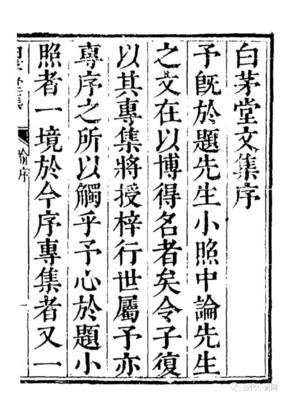 白茅堂文集序
予既於題先生小照中論先生
之文在以博得名者矣今子復
以其專集將授梓行世屬予亦
專序之所以觸乎予心於題小
照者一境於今序專集者又一